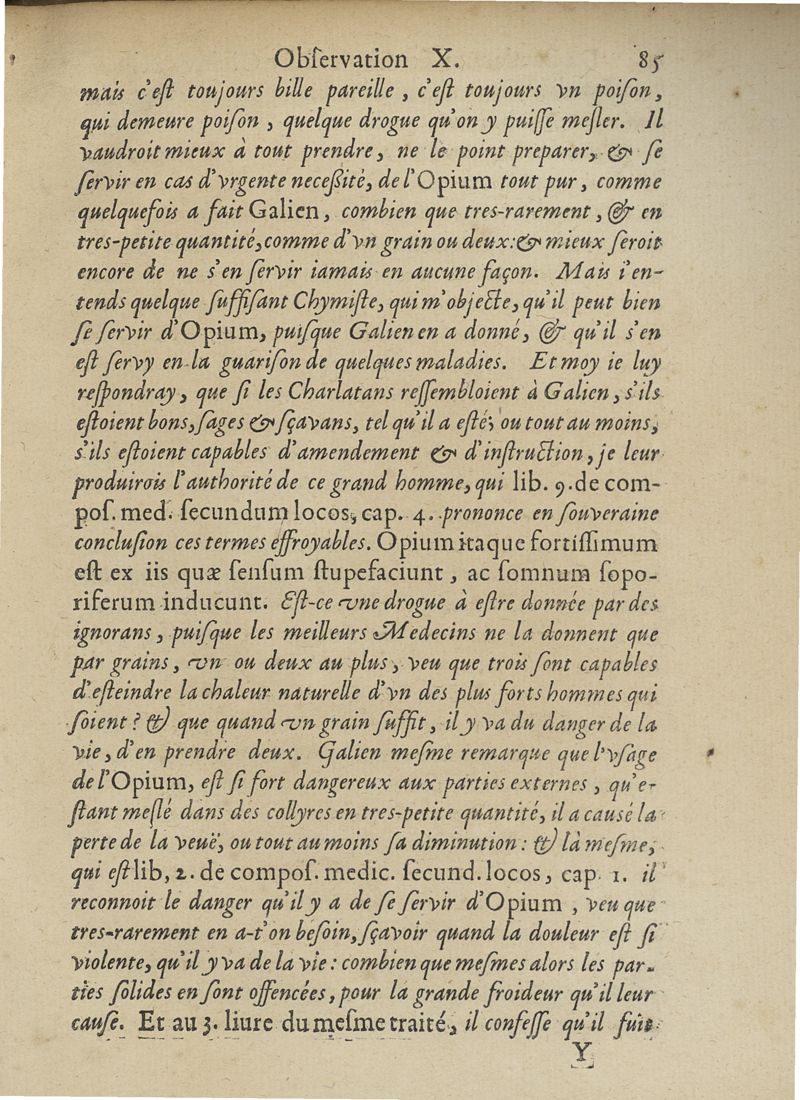 Obſervation X. 85
mais c'eſt toujours bille pareille, c'eſt toujours vn poiſon,
qui demeure poiſon, quelque drogue qu'on y puiſſe meſler. Il
vaudroit mieux à tout prendre, ne le point preparer, & ſe
ſervir en cas d'vrgente neceßité, de l'Opium tout pur, comme
quelquefois a fait Galien, combien que tres-rarement, & en
tres-petite quantité, comme d'vn grain ou deux: & mieux ſeroit
encore de ne s'en ſervir iamais en aucune façon. Mais i'en-
tends quelque ſuffiſant Chymiſte, qui m'objecte, qu'il peut bien
ſe ſervir d'Opium, puiſque Galien en a donné, & qu'il s'en
eſt ſervy en la guariſon de quelques maladies. Et moy ie luy
reſpondray, que ſi les Charlatans reſſembloient à Galien, s'ils
eſtoient bons, ſages & ſçavans, tel qu'il a eſté; ou tout au moins,
s'ils eſtoient capables d'amendement & d'inſtruction, je leur
produirois l'authorité de ce grand homme, qui lib. 9. de com-
poſ. med. ſecundum locos, cap. 4. prononce en ſouveraine
concluſion ces termes effroyables. Opium itaque fortiſſimum
eſt ex iis quæ ſenſum ſtupefaciunt, ac ſomnum ſopo-
riferum inducunt. Eſt-ce vne drogue à eſtre donnée par des
ignorans, puiſque les meilleurs Medecins ne la donnent que
par grains, vn ou deux au plus, veu que trois ſont capables
d'eſteindre la chaleur naturelle d'vn des plus forts hommes qui
ſoient? & que quand vn grain ſuffit, il y va du danger de la
vie, d'en prendre deux. Galien meſme remarque que l'vſage
de l'Opium, eſt ſi fort dangereux aux parties externes, qu'e-
ſtant meſlé dans des collyres en tres-petite quantité, il a cauſé la
perte de la veuë, ou tout au moins ſa diminution: & là meſme,
qui eſt lib, 2. de compoſ. medic. ſecund. locos, cap. 1. il
reconnoit le danger qu'il y a de ſe ſervir d'Opium, veu que
tres-rarement en a-t'on beſoin, ſçavoir quand la douleur eſt ſi
violente, qu'il y va de la vie: combien que meſmes alors les par-
ties ſolides en ſont offencées, pour la grande froideur qu'il leur
cauſe. Et au 3. liure du meſme traité, il confeſſe qu'il fuit
Y